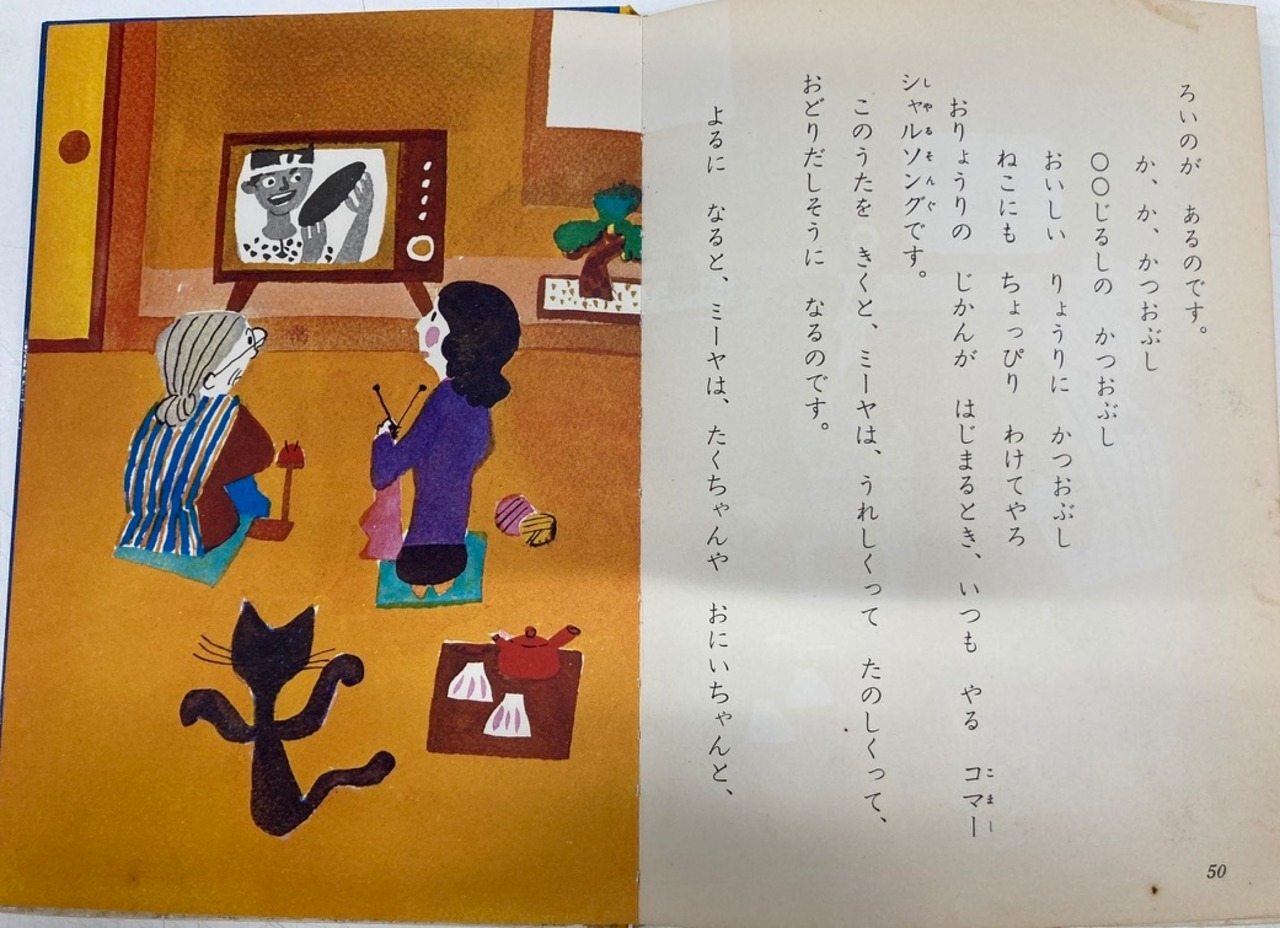 ろいのが　あるのです。
か、か、かつおぶし
〇〇じるしの　かつおぶし
おいしい　りょうりに　かつおぶし
ねこにも　ちょっぴり　わけてやろ
おりょうりの　じかんが　はじまるとき、いつも　やる　コマー
シャルソングです。
このうたを　きくと、ミーヤは、うれしくって　たのしくって、
おどりだしそうに　なるのです。
よるに　なると、ミーヤは、たくちゃんや　おにいちゃんと、
50